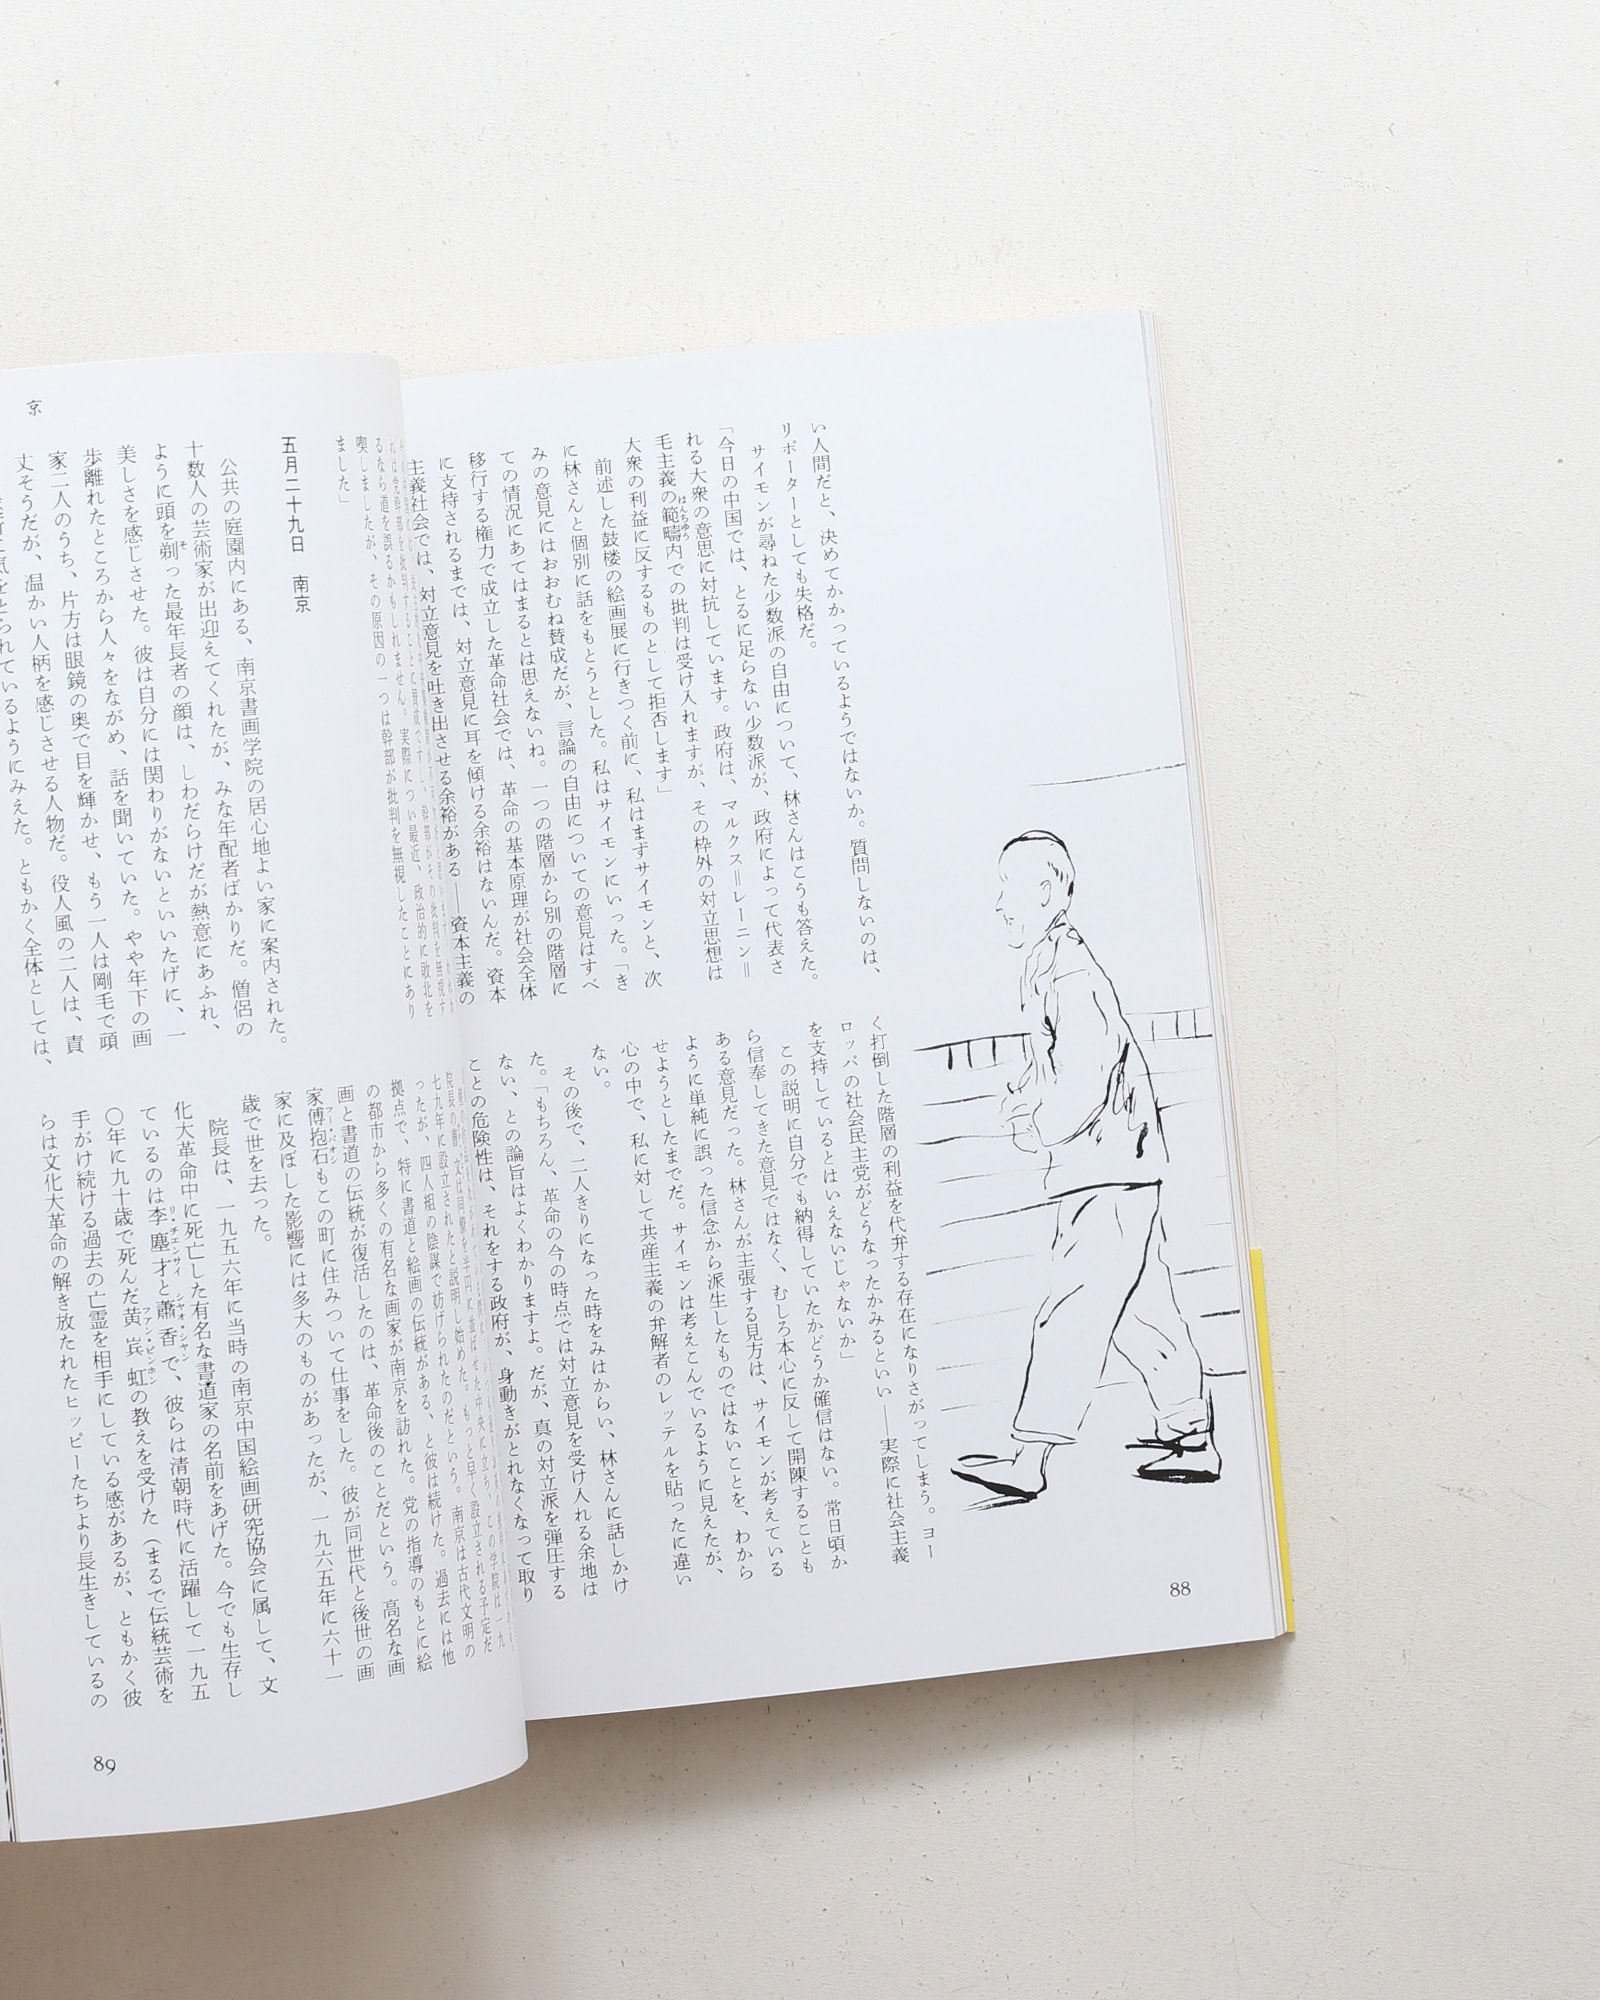 い人間だと、決めてかかっているようではないか。質問しないのは、
リポーターとしても失格だ。
サイモンが尋ねた少数派の自由について、林さんはこうも答えた。
「今日の中国では、とるに足らない少数派が、政府によって代表さ
れる大衆の意思に対抗しています。政府は、マルクス＝レーニン＝
毛主義の範疇内での批判は受け入れますが、その枠外の対立思想は
はんちゅう
大衆の利益に反するものとして拒否します」
前述した鼓楼の絵画展に行きつく前に、私はまずサイモンと、次
に林さんと個別に話をもとうとした。私はサイモンにいった。「き
みの意見にはおおむね賛成だが、言論の自由についての意見はすべ
ての情況にあてはまるとは思えないね。一つの階層から別の階層に
移行する権力で成立した革命社会では、革命の基本原理が社会全体
に支持されるまでは、対立意見に耳を傾ける余裕はないんだ。資本
主義社会では、対立意見を吐き出させる余裕がある――資本主義の
く打倒した階層の利益を代弁する存在になりさがってしまう。ヨー
ロッパの社会民主党がどうなったかみるといい――実際に社会主義
を支持しているとはいえないじゃないか」
この説明に自分でも納得していたかどうか確信はない。常日頃か
ら信奉してきた意見ではなく、むしろ本心に反して開陳することも
ある意見だった。林さんが主張する見方は、サイモンが考えている
ように単純に誤った信念から派生したものではないことを、わから
せようとしたまでだ。サイモンは考えこんでいるように見えたが、
心の中で、私に対して共産主義の弁解者のレッテルを貼ったに違い
ない。
その後で、二人きりになった時をみはからい、林さんに話しかけ
た。「もちろん、革命の今の時点では対立意見を受け入れる余地は
ない、との論旨はよくわかりますよ。だが、真の対立派を弾圧する
ことの危険性は、それをする政府が、身動きがとれなくなって取り
88
京
れは党幹部を批判することに賛成ですし、幹部がその批判を無視す
るなら道を誤るかもしれません。実際につい最近、政治的に敗北を
喫しましたが、その原因の一つは幹部が批判を無視したことにあり
ました」
五月二十九日　南京
公共の庭園内にある、南京書画学院の居心地よい家に案内された。
十数人の芸術家が出迎えてくれたが、みな年配者ばかりだ。僧侶の
ように頭を剃った最年長者の顔は、しわだらけだが熱意にあふれ、
そ
美しさを感じさせた。彼は自分には関わりがないといいたげに、一
歩離れたところから人々をながめ、話を聞いていた。やや年下の画
家二人のうち、片方は眼鏡の奥で目を輝かせ、もう一人は剛毛で頑
丈そうだが、温かい人柄を感じさせる人物だ。役人風の二人は、責
気をとられているようにみえた。ともかく全体としては、
七九年に設立されたと説明し始めた。もっと早く設立される予定だ
ったが、四人組の陰謀で妨げられたのだという。南京は古代文明の
拠点で、特に書道と絵画の伝統がある、と彼は続けた。過去には他
の都市から多くの有名な画家が南京を訪れた。党の指導のもとに絵
画と書道の伝統が復活したのは、革命後のことだという。高名な画
家傅抱石もこの町に住みついて仕事をした。彼が同世代と後世の画
フー・パオシ
家に及ぼした影響には多大のものがあったが、一九六五年に六十一
歳で世を去った。
院長は、一九五六年に当時の南京中国絵画研究協会に属して、文
化大革命中に死亡した有名な書道家の名前をあげた。今でも生存し
ているのは李塵才と蕭香で、彼らは清朝時代に活躍して一九五
リ・チエンサイ　シャオ・シャン
〇年に九十歳で死んだ黄賓虹の教えを受けた（まるで伝統芸術を
ファン・ピンホン
手がけ続ける過去の亡霊を相手にしている感があるが、ともかく彼
らは文化大革命の解き放たれたヒッピーたちより長生きしているの
89